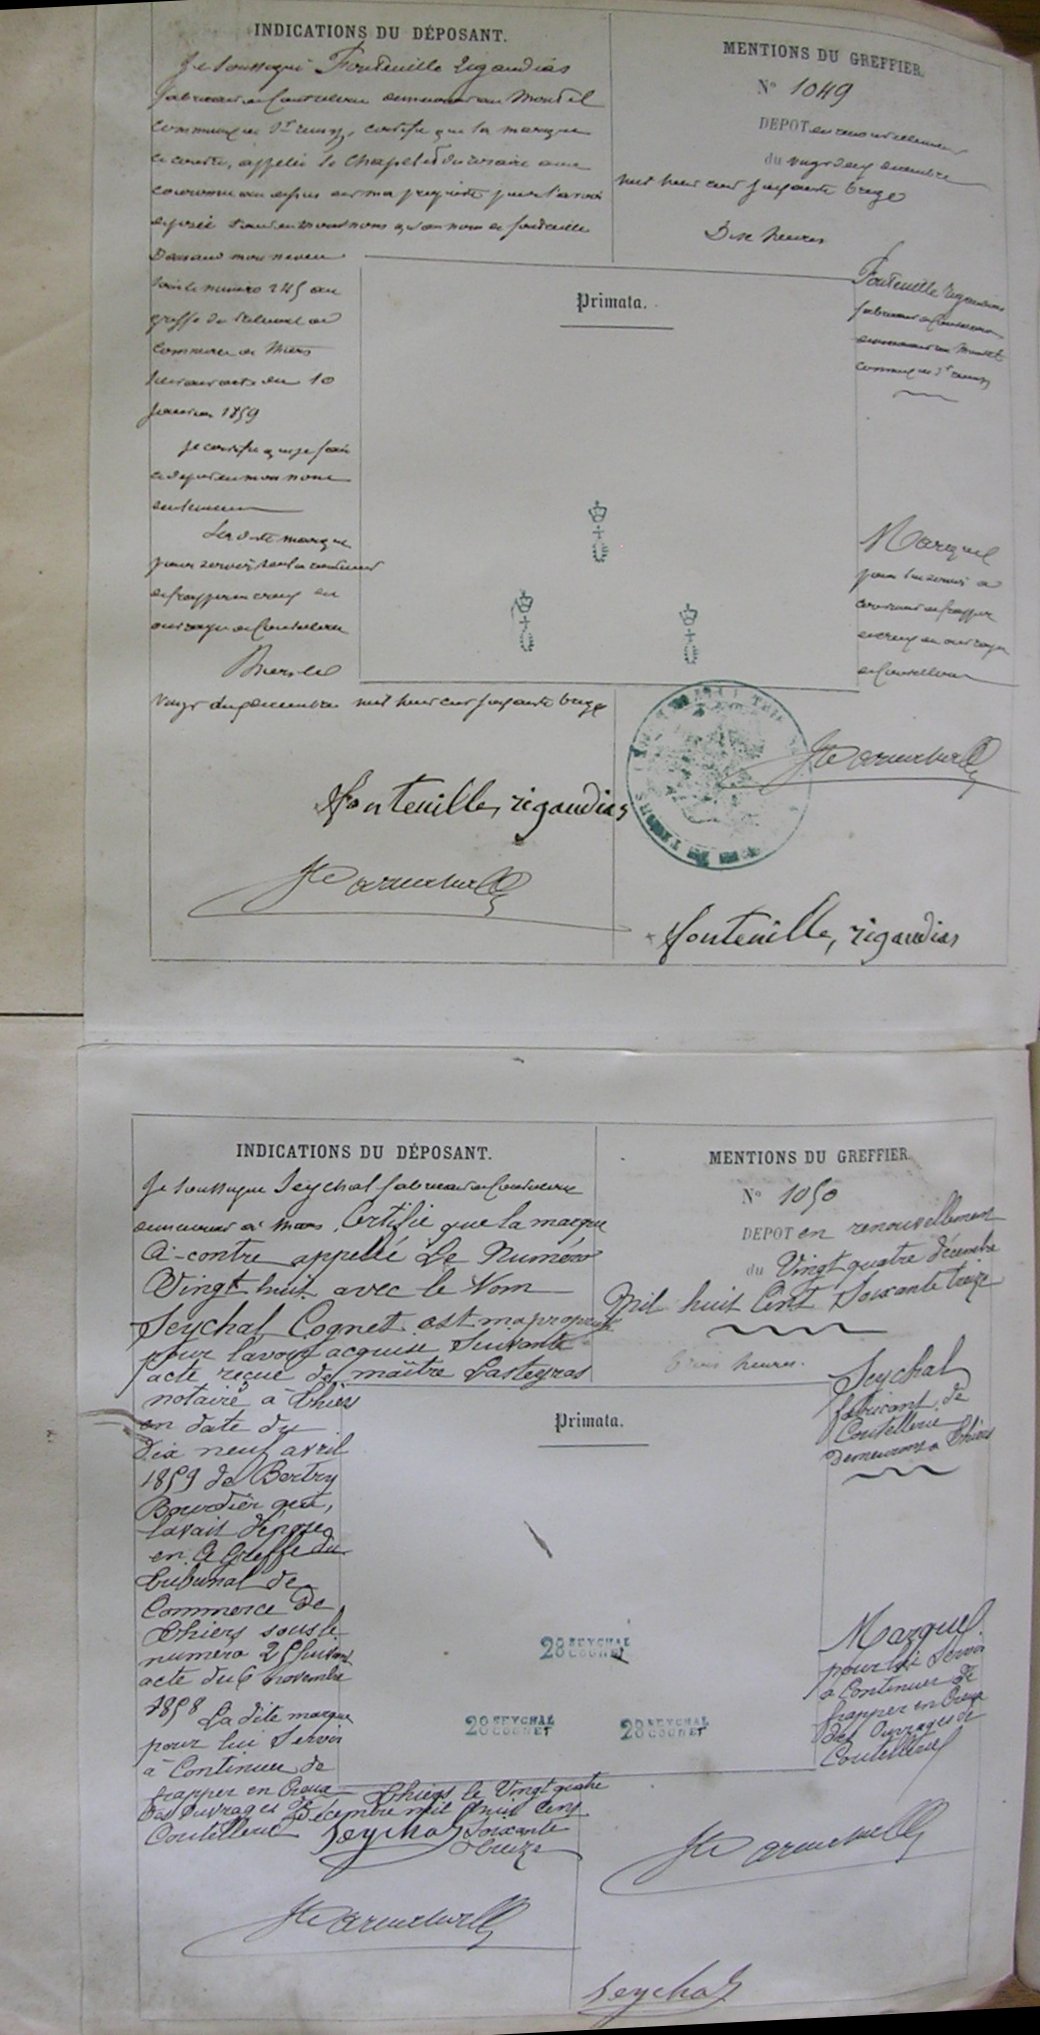 INDICATIONS DU DÉPOSANT.
Je soussigné Fontenille Rigaudias
fabricant de Coutellerie demeurant au Moutel
commune de St remy, certifie que la marque
ci contre, appelée le Chapelet du rosaire avec
couronne au dessus est ma propriété pour l'avoir
déposée tant en mon nom qu'au nom de fontenille
mon neveu
sous le numéro 245 au
greffe du tribunal de
Commerce de Thiers
suivant acte du 10
janvier 1859
Je certifie que je fais
ce dépôt en mon nom
seulement
La dite marque
pour servir
de frapper en creux des
ouvrages de Coutellerie
Thiers le
vingt deux décembre mil huit cent soixante treize
fontenille, rigaudias
MENTIONS DU GREFFIER.
N° 1049
DEPOT en renouvellement
du vingt deux décembre
mil huit cent soixante treize
Dix heures
Primata.
Fontenille Rigaudias
fabricant de Coutellerie
demeurant au Moutel
commune de St remy
Marque
pour lui servir à
continuer de frapper
en creux des ouvrages
de Coutellerie
fontenille, rigaudias
INDICATIONS DU DÉPOSANT.
Je soussigné Seychal fabricant de Coutellerie
demeurant à Thiers, Certifie que la marque
Ci-contre appellé Le Numéro
Vingt huit avec le Nom
Seychal Cognet est ma propriété
pour lavoir acquise Suivante
acte reçue de maître Lasteyras
notaire à Thiers
en date du
Dix neuf avril
1859 de Bertry
Bourdier qui,
lavait déposé
en Ce Greffe du
tribunal de
Commerce de
Thiers sous le
numéro 25 suivant
acte du 6 novembre
1858 La dite marque
pour lui Servir
à Continuer de
frapper en Creux
des Ouvrages de
Coutellerie
Thiers le Vingt quatre
Décembre mil huit Cent
Soixante
treize
Seychal
MENTIONS DU GREFFIER.
N° 1050
DEPOT en renouvellement
du Vingt quatre décembre
Mil huit Cent Soixante treize
trois heures.
Primata.
Seychal
fabricant de
Coutellerie
demeurant à Thiers
28 SEYCHAL
COGNET
28 SEYCHAL
COGNET
28 SEYCHAL
COGNET
Marque
pour lui Servir
à Continuer de
frapper en Creux
des Ouvrages de
Coutellerie
Seychal